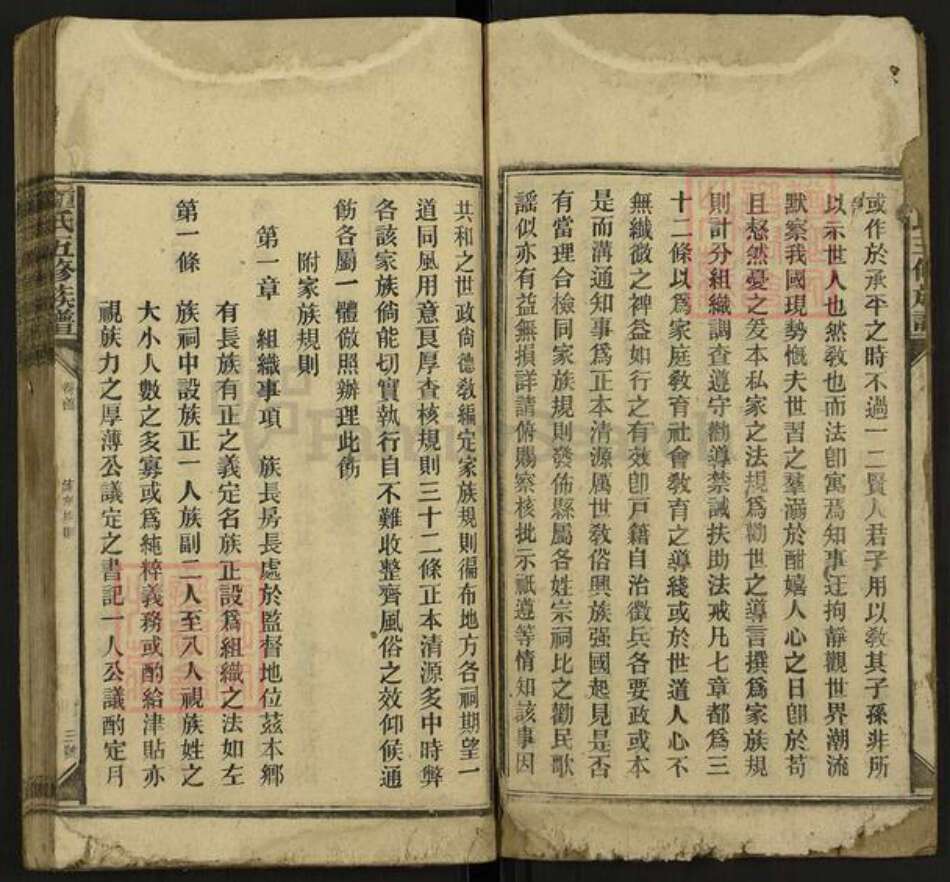 或作於承平之時不過一二賢人君子用以敎其子孫非所
以示世人也然敎也而法卽寓焉知事迂拘靜觀世界潮流
默察我國現勢慨夫世習之羣溺於酣嬉人心之日卽於苟
且愁然憂之爰本私家之法規爲勸世之導言撰爲家族規
則計分組織調查遵守勸導禁誡扶助法戒凡七章都爲三
十二條以爲家庭敎育社會敎育之導綫或於世道人心不
無纖微之裨益如行之有效卽戸籍自治徵兵各要政或本
是而溝通知事爲正本清源厲世敎俗興族强國起見是否
有當理合檢同家族規則發佈縣屬各姓宗祠比之勸民歌
謠似亦有益無損詳請俯賜察核批示祗遵等情知該事因
共和之世政尙德敎編定家族規則徧布地方各祠期望一
道同風用意良厚查核規則三十二條正本清源多中時弊
各該家族倘能切實執行自不難收整齊風俗之效仰候通
飭各屬一體倣照辦理此飭
附家族規則
第一章　組織事項　族長房長處於監督地位茲本鄕
有長族有正之義定名族正設爲組織之法如左
第一條　族祠中設族正一人族副二人至八人視族姓之
大小人數之多寡或爲純粹義務或酌給津貼亦
視族力之厚薄公議定之書記一人公議酌定月
氏五修族譜
三號